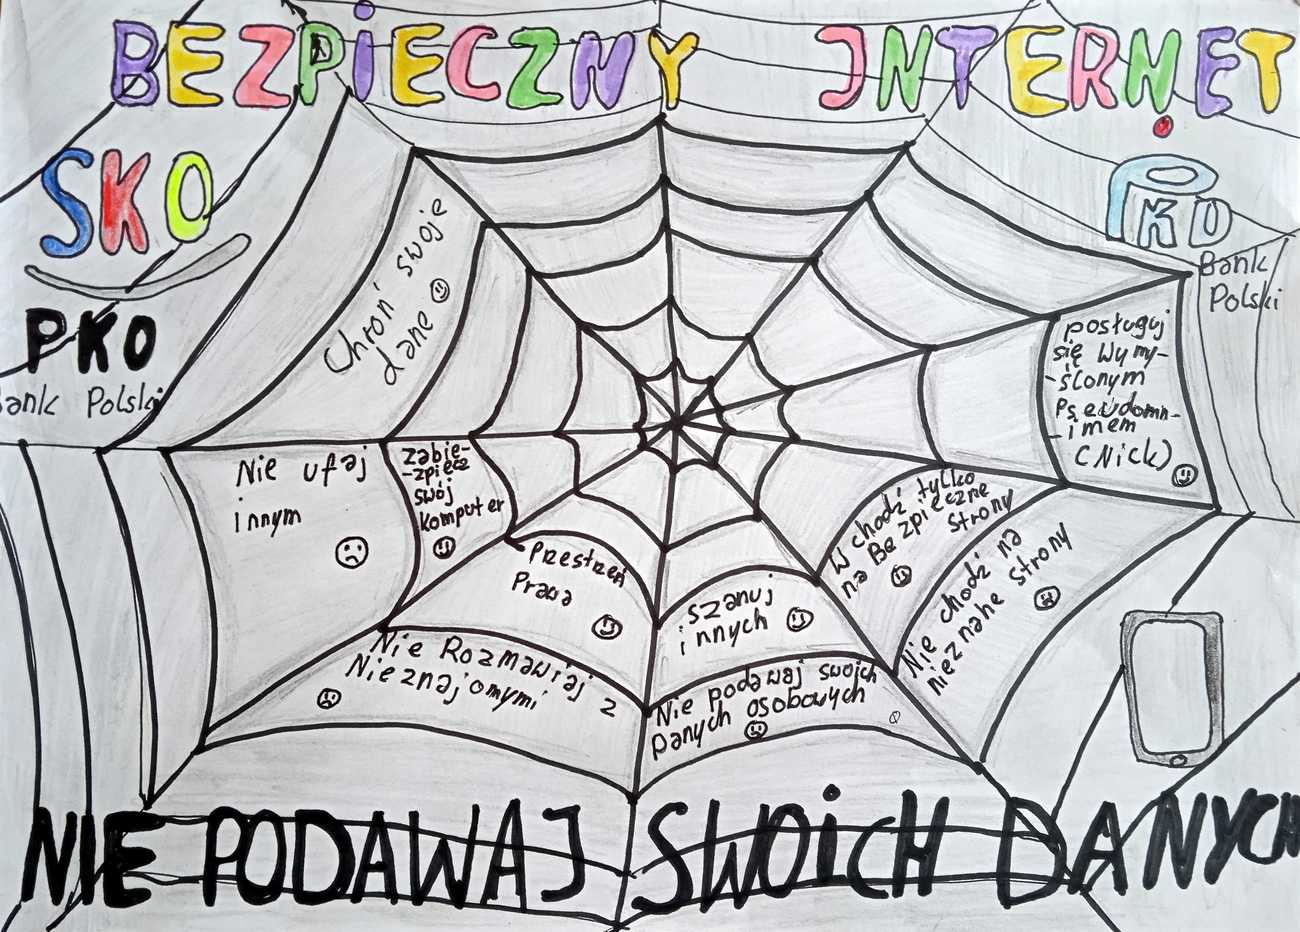 BEZPIECZNY INTERNET
SKO
PKO
Bank Polski
PKO
Bank
Polski
Chroń swoje
dane
posługuj
się wymy-
-ślonym
Pseudomn-
-imem
(Nick)
Nie ufaj
innym
zabie-
-zpiecz
swój
komputer
Przestrzeń
Prawa
szanuj
innych
Wchodź tylko
na Bezpieczne
strony
Nie chodź na
nieznane strony
Nie Rozmawiaj z
Nieznajomymi
Nie podawaj swoich
Danych osobowych
NIE PODAWAJ SWOICH DANYCH